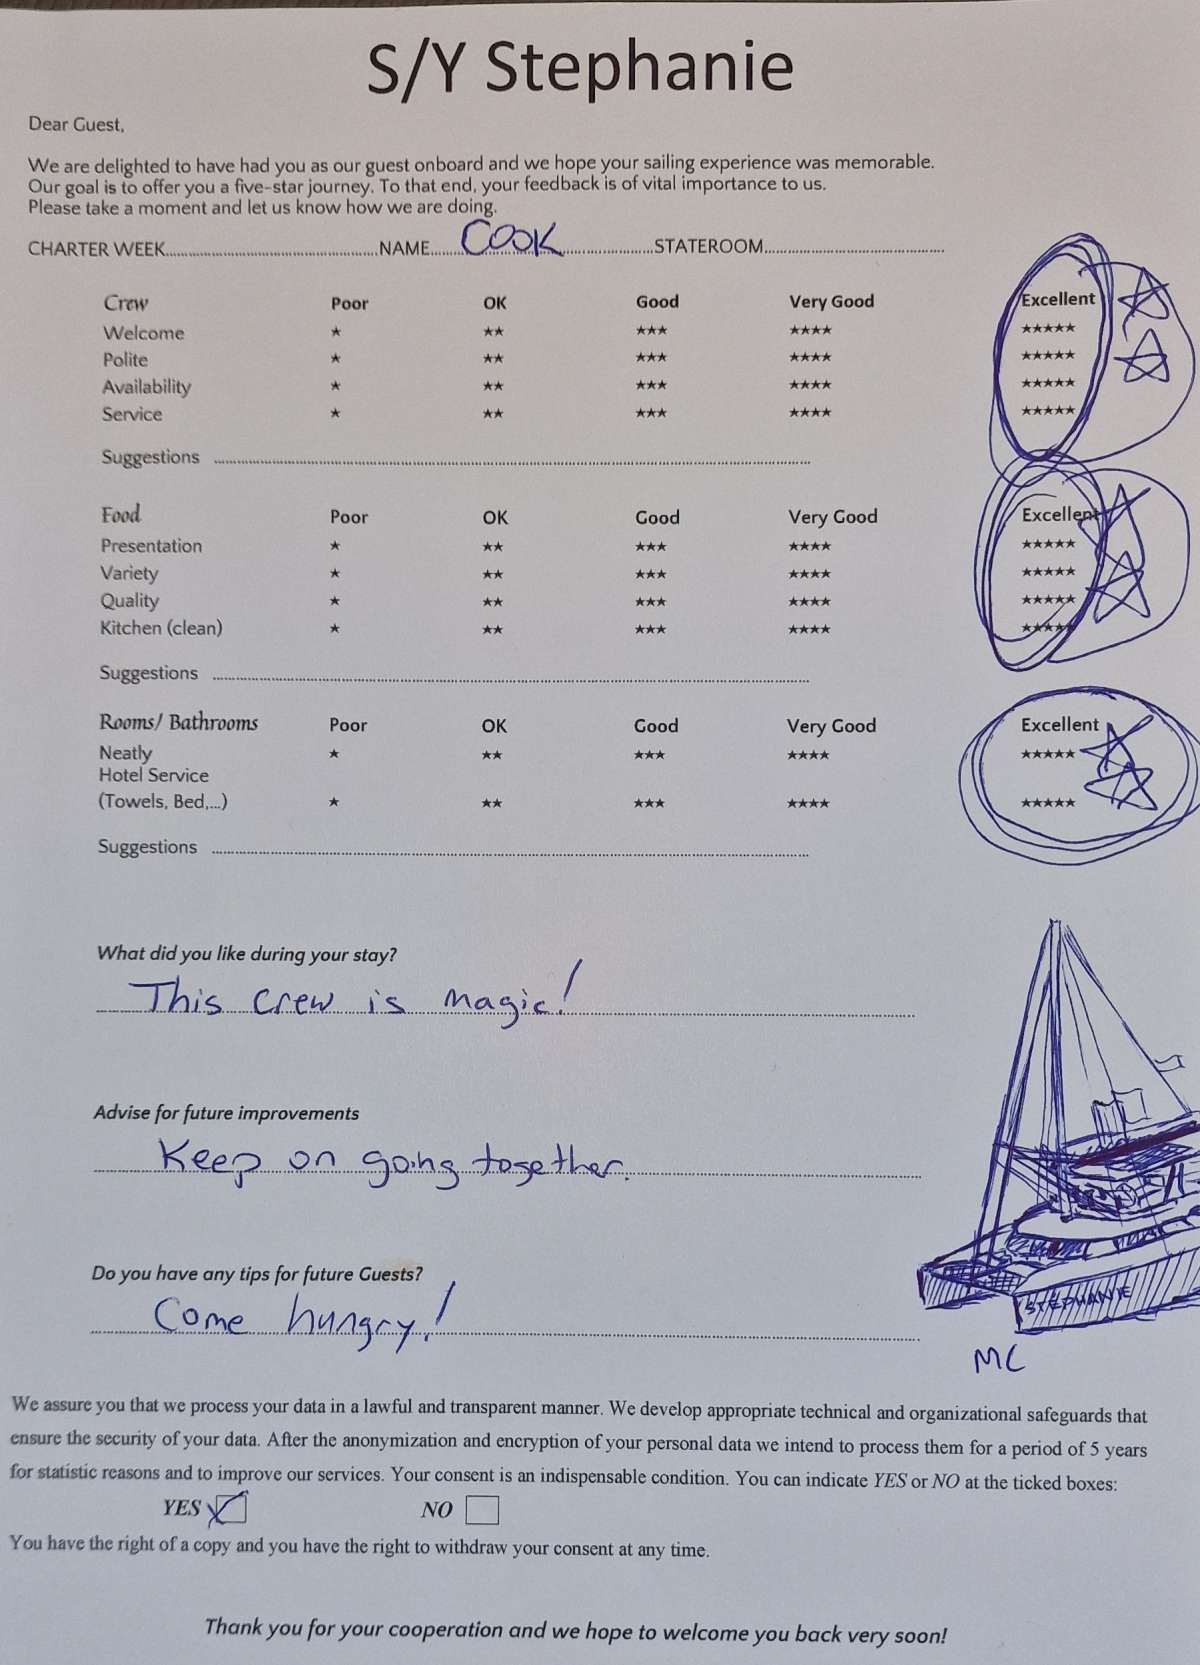 S/Y Stephanie
Dear Guest,
We are delighted to have had you as our guest onboard and we hope your sailing experience was memorable.
Our goal is to offer you a five-star journey. To that end, your feedback is of vital importance to us.
Please take a moment and let us know how we are doing.
CHARTER WEEK..........NAME.....COOK..........STATEROOM..........
Crew Poor OK Good Very Good Excellent
Welcome ★ ★★ ★★★ ★★★★ ★★★★★
Polite ★ ★★ ★★★ ★★★★ ★★★★★
Availability ★ ★★ ★★★ ★★★★ ★★★★★
Service ★ ★★ ★★★ ★★★★ ★★★★★
Suggestions ..........
Food Poor OK Good Very Good Excellent
Presentation ★ ★★ ★★★ ★★★★ ★★★★★
Variety ★ ★★ ★★★ ★★★★ ★★★★★
Quality ★ ★★ ★★★ ★★★★ ★★★★★
Kitchen (clean) ★ ★★ ★★★ ★★★★ ★★★★★
Suggestions ..........
Rooms/ Bathrooms Poor OK Good Very Good Excellent
Neatly ★ ★★ ★★★ ★★★★ ★★★★★
Hotel Service
(Towels, Bed,...) ★ ★★ ★★★ ★★★★ ★★★★★
Suggestions ..........
What did you like during your stay?
This crew is magic!
Advise for future improvements
Keep on going together.
Do you have any tips for future Guests?
Come hungry!
STEPHANIE
MC
We assure you that we process your data in a lawful and transparent manner. We develop appropriate technical and organizational safeguards that
ensure the security of your data. After the anonymization and encryption of your personal data we intend to process them for a period of 5 years
for statistic reasons and to improve our services. Your consent is an indispensable condition. You can indicate YES or NO at the ticked boxes:
YES NO
You have the right of a copy and you have the right to withdraw your consent at any time.
Thank you for your cooperation and we hope to welcome you back very soon!